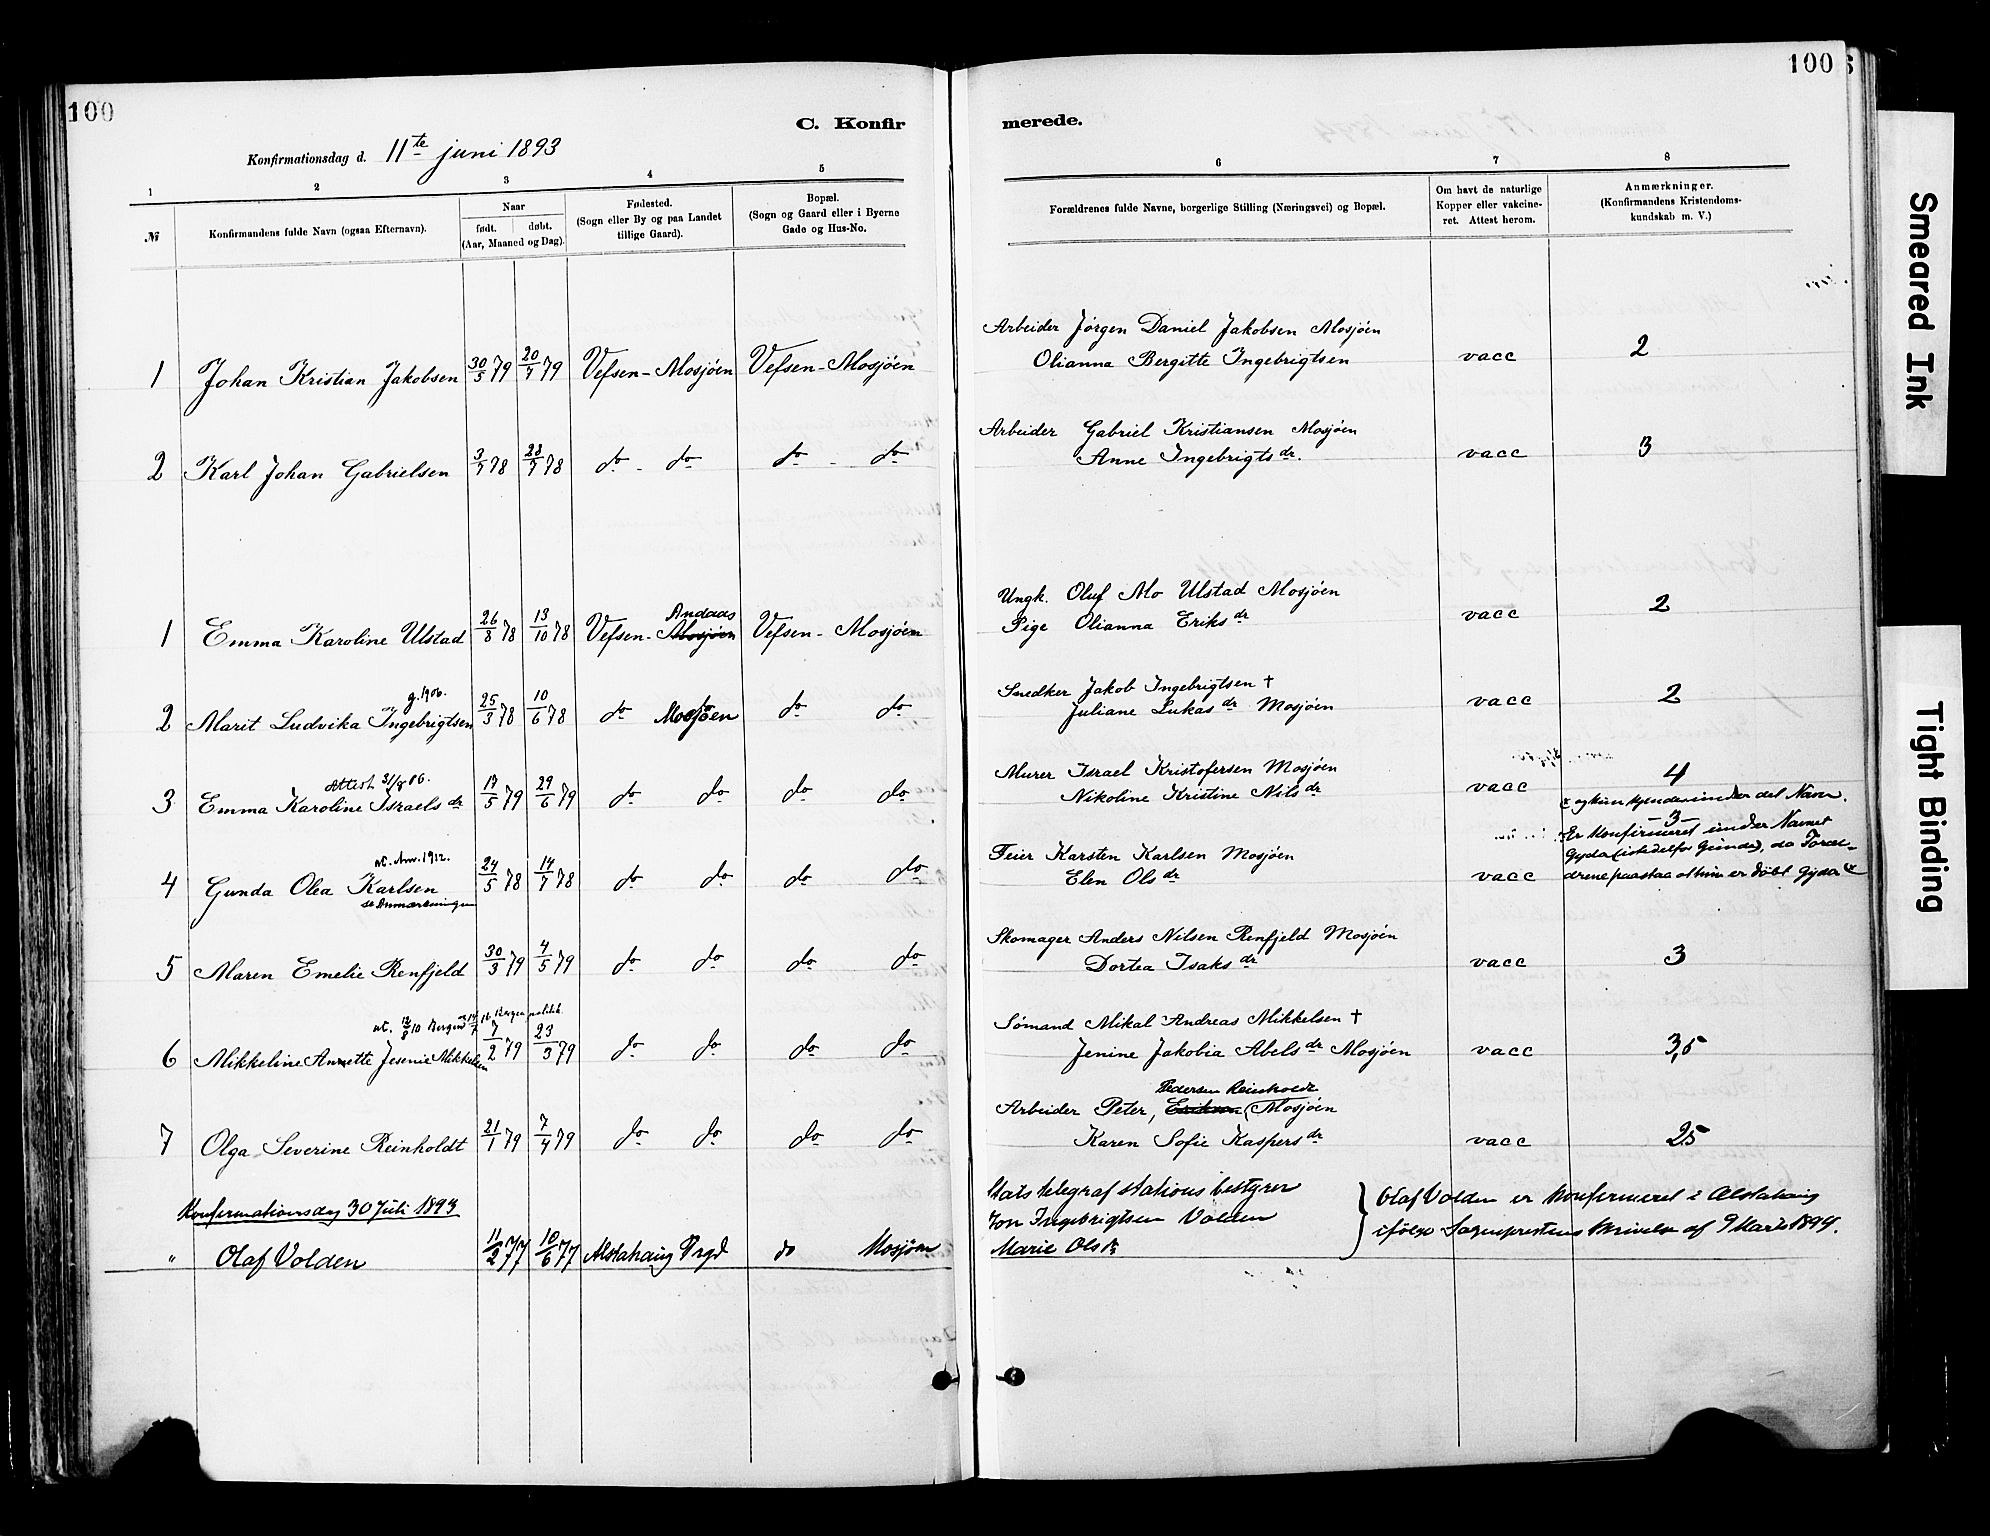 100
100
C. Konfir
merede.
Konfirmationsdag d. 11te juni 1893
1 2 3 4 5 6 7 8
№
Konfirmandens fulde Navn (ogsaa Efternavn).
Naar
født. døbt.
(Aar, Maaned og Dag).
Fødested.
(Sogn eller By og paa Landet
tillige Gaard).
Bopæl.
(Sogn og Gaard eller i Byerne
Gade og Hus-No.
Forældrenes fulde Navne, borgerlige Stilling (Næringsvei) og Bopæl.
Om havt de naturlige
Kopper eller vakcine-
ret. Attest herom.
Anmærkninger.
(Konfirmandens Kristendoms-
kundskab m. V.)
Arbeider Jørgen Daniel Jakobsen Mosjøen
1 Johan Kristian Jakobsen 30/5 79 20/7 79 Vefsen - Mosjøen Vefsen - Mosjøen Olianna Bergitte Ingebrigtsen vacc 2
Arbeider Gabriel Kristiansen Mosjøen
2 Karl Johan Gabrielsen 3/7 78 28/7 78 do - do do - do Anne Ingebrigtsdr. vacc 3
Ungk. Oluf Mo Ulstad Mosjøen
Andaas
1 Emma Karoline Ulstad 26/8 78 13/10 78 Vefsen - Mosjøen Vefsen - Mosjøen Pige Olianna Eriksdr vacc 2
g. 1906.
Snedker Jakob Ingebrigtsen †
2 Marit Ludvika Ingebrigtsen 25/3 78 10/6 78 do Mosjøen do do Juliane Lukasdr Mosjøen vacc 2
Attest 31/8 06.
Murer Israel Kristofersen Mosjøen
3 Emma Karoline Israelsdr 17/5 79 29/6 79 do do do do Nikoline Kristine Nilsdr vacc 4
og hun kjendes under det Navn.
at. Am. 1912.
Feier Karsten Karlsen Mosjøen
4 Gunda Olea Karlsen 24/5 78 14/7 78 do do do do Elen Olsdr vacc - 3 -
se Anmærkningen
Er konfirmeret under Navnet
Gyda (istedetfor Gunda), da Foræl-
drene paastaa at hun er døbt Gyda
Skomager Anders Nilsen Renfjeld Mosjøen
5 Maren Emelie Renfjeld 30/3 79 4/5 79 do do do do Dortea Isaksdr vacc 3
at. 12/8 10 Bergen
Sømand Mikal Andreas Mikkelsen †
6 Mikkeline Annette Jesenie Mikkelsen 7/2 79 23/3 79 do do do do Jenine Jakobia Abelsdr Mosjøen vacc 3,5
Pedersen Reinholdt
Arbeider Peter, Eriksen (Mosjøen
7 Olga Severine Reinholdt 21/1 79 7/4 79 do do do do Karen Sofie Kaspersdr vacc 2,5
Konfirmationsdag 30 Juli 1893
Stats telegraf stations bestyrer
Jon Ingebrigtsen Volden
" Olaf Volden 11/2 77 10/6 77 Alstahaug Prgd do Mosjøen Marie Olsdr
Olaf Volden er konfirmeret i Alstahaug
ifølge Sogneprestens Skrivelse af 9 Marts 1899.
Smeared Ink
Tight Binding